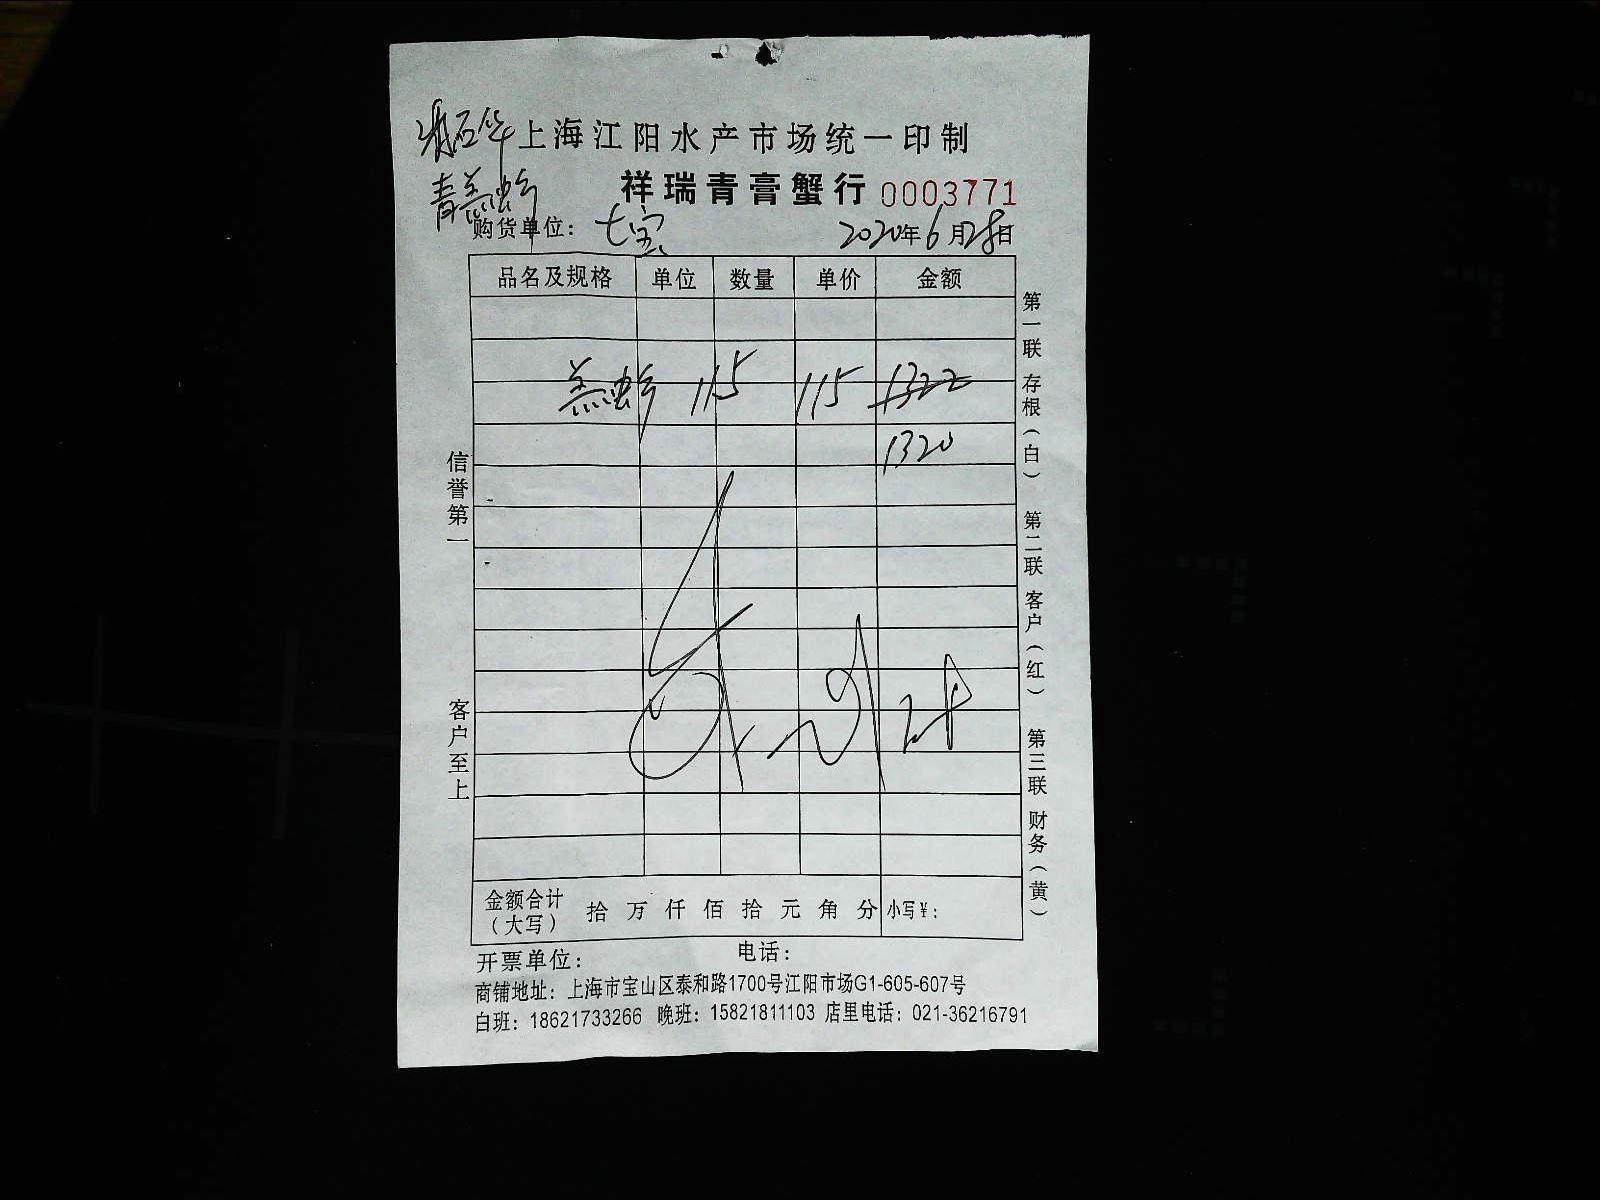 上海江阳水产市场统一印制
祥瑞青膏蟹行 0003771
购货单位： 七宝 2020年6月28日
品名及规格 单位 数量 单价 金额
115 115 1322
1320
信誉第一
客户至上
第一联 存根（白） 第二联 客户（红） 第三联 财务（黄）
金额合计（大写） 拾 万 仟 佰 拾 元 角 分 小写¥：
开票单位： 电话：
商铺地址：上海市宝山区泰和路1700号江阳市场G1-605-607号
白班：18621733266 晚班：15821811103 店里电话：021-36216791